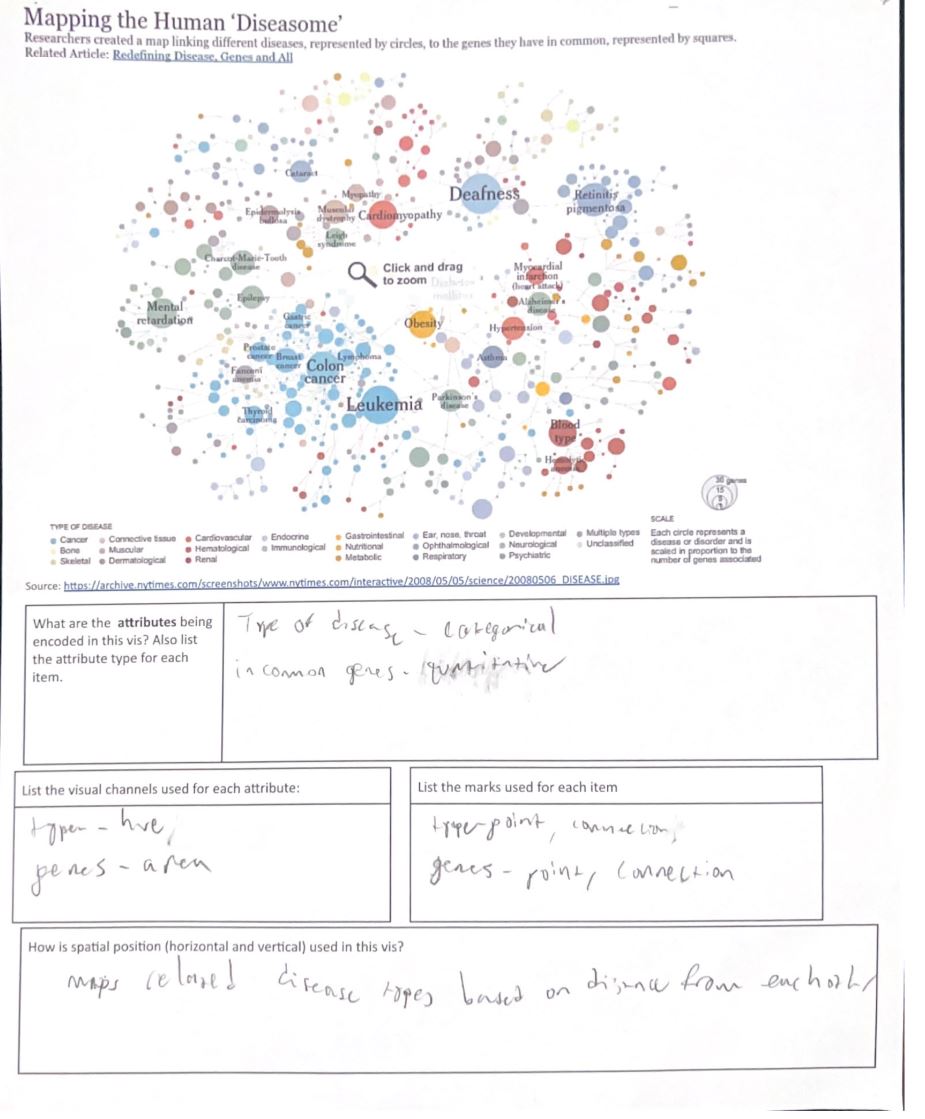 Mapping the Human 'Diseasome'
Researchers created a map linking different diseases, represented by circles, to the genes they have in common, represented by squares.
Related Article: Redefining Disease, Genes and All
Cataract
Deafness
Retinitis
pigmentosa
Myopathy
Epidermolysis
bullosa
Muscular
dystrophy
Cardiomyopathy
Leigh
syndrome
Charcot-Marie-Tooth
disease
Click and drag
to zoom
Diabetes
mellitus
Myocardial
infarction
(heart attack)
Epilepsy
Alzheimer's
disease
Mental
retardation
Gastric
cancer
Obesity
Hypertension
Prostate
cancer
Breast
cancer
Lymphoma
Asthma
Colon
cancer
Fanconi
anemia
Leukemia
Parkinson's
disease
Thyroid
carcinoma
Blood
type
30 genes
15
TYPE OF DISEASE
Cancer
Bone
Skeletal
Connective tissue
Muscular
Dermatological
Cardiovascular
Hematological
Renal
Endocrine
Immunological
Gastrointestinal
Nutritional
Metabolic
Ear, nose, throat
Ophthalmological
Respiratory
Developmental
Neurological
Psychiatric
Multiple types
Unclassified
SCALE
Each circle represents a
disease or disorder and is
scaled in proportion to the
number of genes associated
Source: https://archive.nytimes.com/screenshots/www.nytimes.com/interactive/2008/05/05/science/20080506_DISEASE.jpg
What are the attributes being
encoded in this vis? Also list
the attribute type for each
item.
Type of disease - categorical
in common genes - quantitative
List the visual channels used for each attribute:
types - hue,
genes - area
List the marks used for each item
type - point, connection,
genes - point, connection
How is spatial position (horizontal and vertical) used in this vis?
maps related disease types based on distance from each other